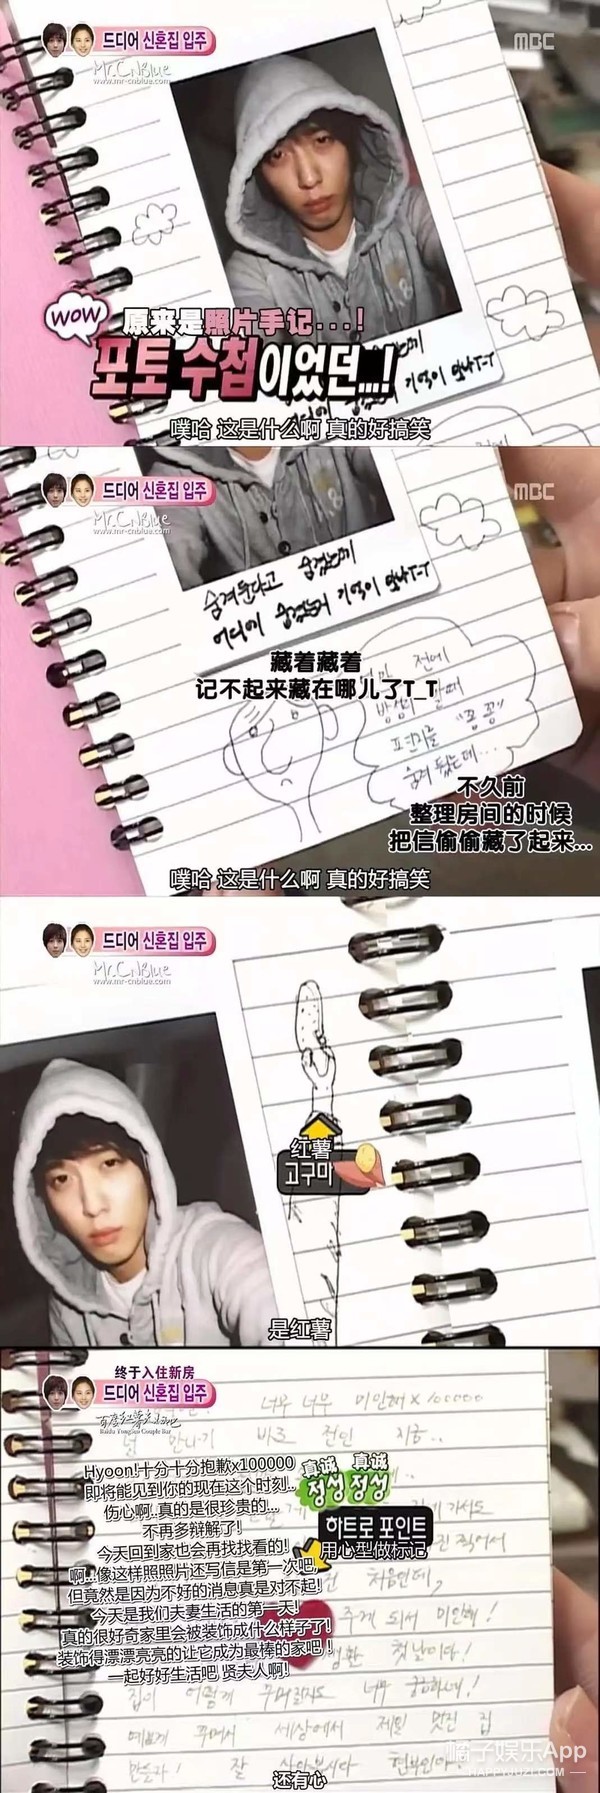 드디어 신혼집 입주
MBC
Mr.CNBlue
www.mr-cnblue.com
WOW
原来是照片手记...!
포토 수첩이었던...!
어디에 숨겼는지 기억이 안나T-T
噗哈 这是什么啊 真的好搞笑
드디어 신혼집 입주
MBC
Mr.CNBlue
www.mr-cnblue.com
숨겨둔다고 숨겼는데
어디에 숨겼는지 기억이 안나T-T
藏着藏着
记不起来藏在哪儿了T_T
전에
편지를 "꽁꽁"
숨겨 뒀는데...
不久前
整理房间的时候
把信偷偷藏了起来...
噗哈 这是什么啊 真的好搞笑
드디어 신혼집 입주
Mr.CNBlue
www.mr-cnblue.com
红薯
고구마
是红薯
终于入住新房
드디어 신혼집 입주
百度红薯夫妇吧
Baidu YongSeo Couple Bar
너무 너무 미안해 x100000
만나기 바로 전인 지금..
Hyoon!十分十分抱歉x100000
即将能见到你的现在这个时刻..
伤心啊..真的是很珍贵的...
不再多辩解了!
今天回到家也会再找找看的!
啊..像这样照照片还写信是第一次吧,
但竟然是因为不好的消息真是对不起!
今天是我们夫妻生活的第一天!
真的很好奇家里会被装饰成什么样子了!
装饰得漂漂亮亮的让它成为最棒的家吧!
一起好好生活吧 贤夫人啊!
真诚 真诚
정성 정성
하트로 포인트
用心型做标记
가서도
찍어서
처음인데,
주게 되서 미안해!
첫날이다!
집이 어떻게 꾸며질지도 너무 궁금하네!
예쁘게 꾸며서 세상에서 제일 멋진 집
만들자! 잘 살아봅시다 현부인아!
还有心
橘子娱乐App
HAPPYJUZI.COM